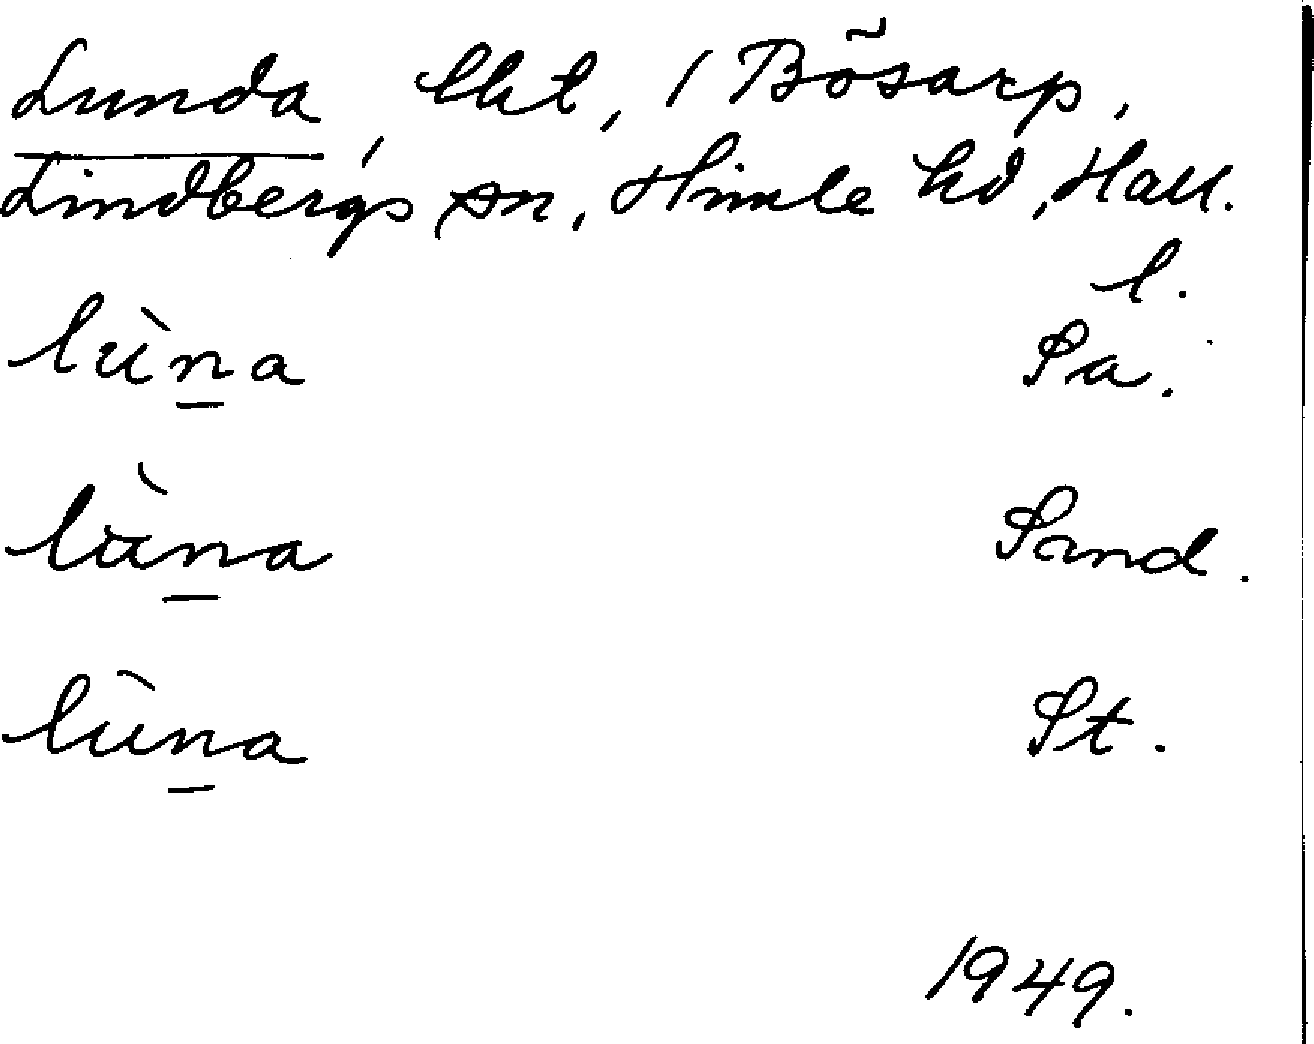 Lunda, lht, 1 Bösarp,
Lindbergs sn, Himle hd, Hall.
l.
lùn̲a Sa.
lùn̲a Sand.
lùn̲a St.
1949.